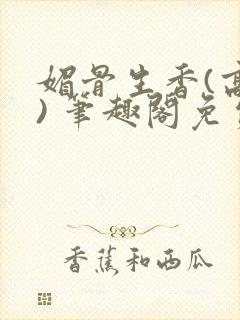 媚骨生香(高
)笔趣阁免
香蕉和西瓜